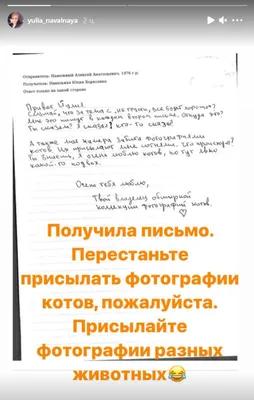 yulia_navalnaya 2 ч.
Отправитель: Навальный Алексей Анатольевич, 1976 г.р.
Получатель: Навальная Юлия Борисовна
Ответ только на одной стороне
Привет, Юлия!
Слушай, что за тема с „не грусти, все будет хорошо"?
Мне это пишут в каждом втором письме. Откуда это?
Ты сказала? Я сказал? Кто-то сказал?
А также моя камера забита фотографиями
котов. Их присылают мне сотнями. Что происходит?
Ты знаешь, я очень люблю котов, но тут явно
какой-то подвох.
Очень тебя люблю,
Твой владелец обширной
коллекции фотографий котов.
Получила письмо.
Перестаньте
присылать фотографии
котов, пожалуйста.
Присылайте
фотографии разных
животных😂